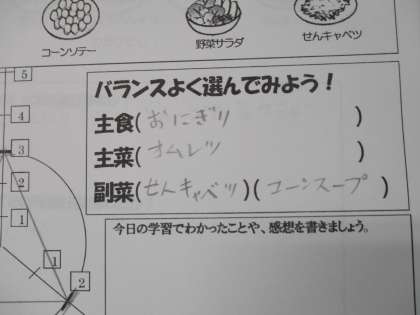 コーンソテー
野菜サラダ
せんキャベツ
バランスよく選んでみよう！
主食(おにぎり)
主菜(オムレツ)
副菜(せんキャベツ)(コーンスープ)
今日の学習でわかったことや、感想を書きましょう。
5
4
3
2
1
1
2